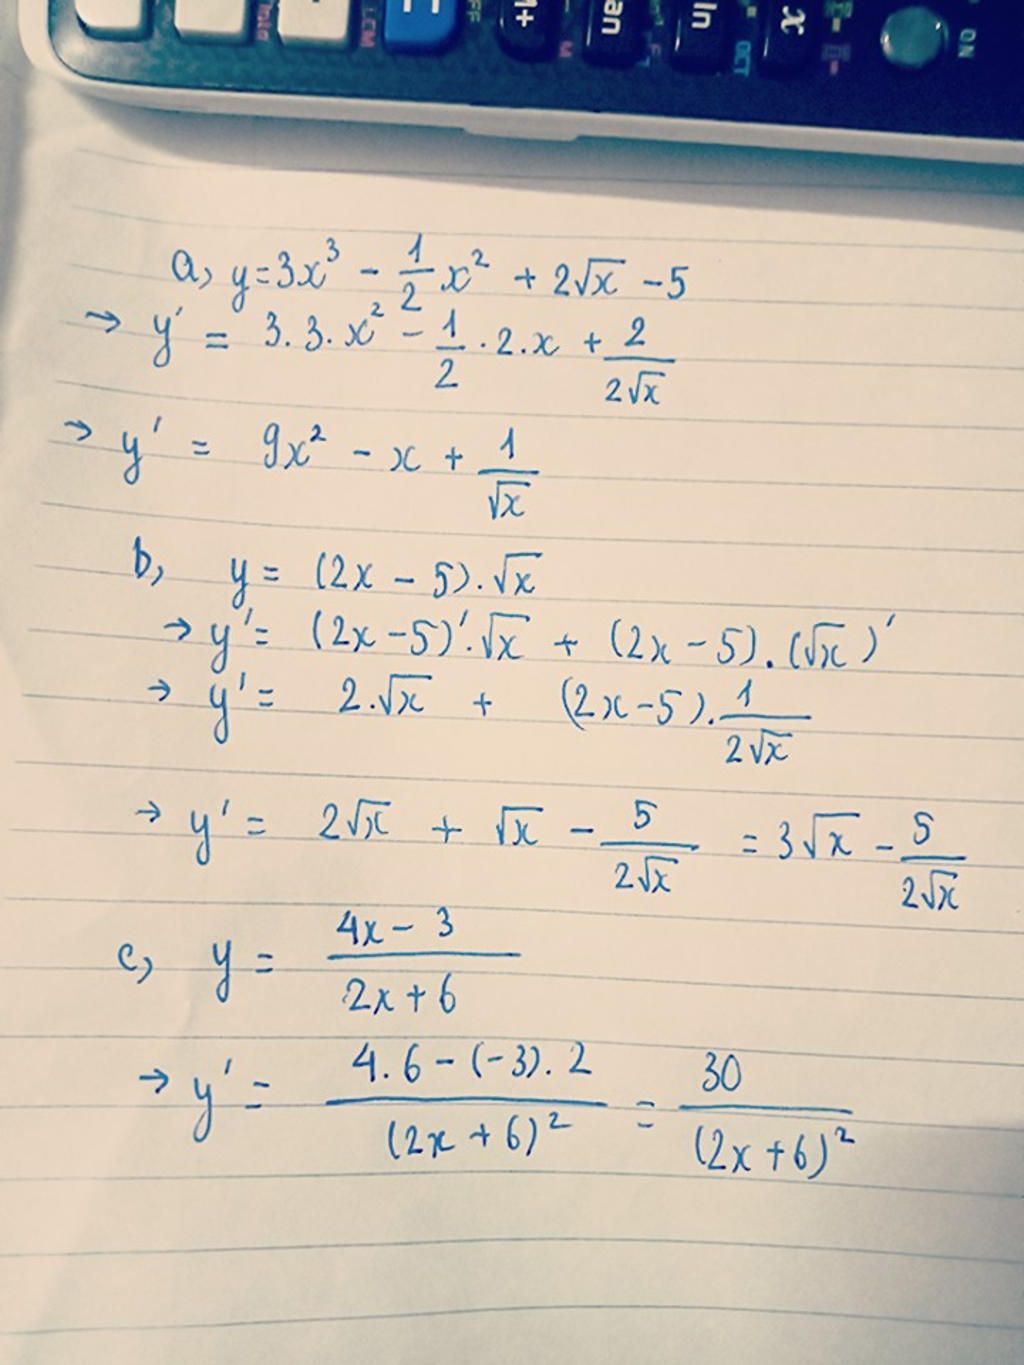 LCM
M+
M
an
ln
OCT
x
ON
a, y = 3x³ - 1/2 x² + 2√x - 5
→ y' = 3.3.x² - 1/2 .2.x + 2/(2√x)
→ y' = 9x² - x + 1/√x
b, y = (2x - 5).√x
→ y' = (2x - 5)'.√x + (2x - 5).(√x)'
→ y' = 2.√x + (2x - 5).1/(2√x)
→ y' = 2√x + √x - 5/(2√x) = 3√x - 5/(2√x)
c, y = (4x - 3)/(2x + 6)
→ y' = (4.6 - (-3).2)/(2x + 6)² = 30/(2x + 6)²